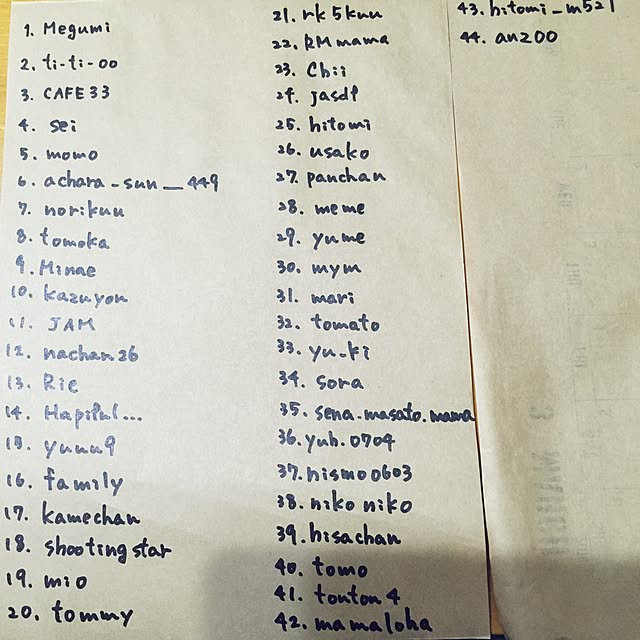 1. Megumi
2. ti-ti-oo
3. CAFE33
4. sei
5. momo
6. achara-sun__449
7. norikuu
8. tomoka
9. Minae
10. kazuyon
11. JAM
12. nachan26
13. Rie
14. Hapiful...
15. yuuu9
16. family
17. kamechan
18. shootingstar
19. mio
20. tommy
21. rk5kuu
22. RMmama
23. Chii
24. jasdf
25. hitomi
26. usako
27. panchan
28. meme
29. yume
30. mym
31. mari
32. tomato
33. yu-ki
34. sora
35. sena.masato.mama
36. yuh.0704
37. hismoo603
38. niko niko
39. hisachan
40. tomo
41. tonton4
42. mamaloha
43. hitomi_m521
44. anzoo